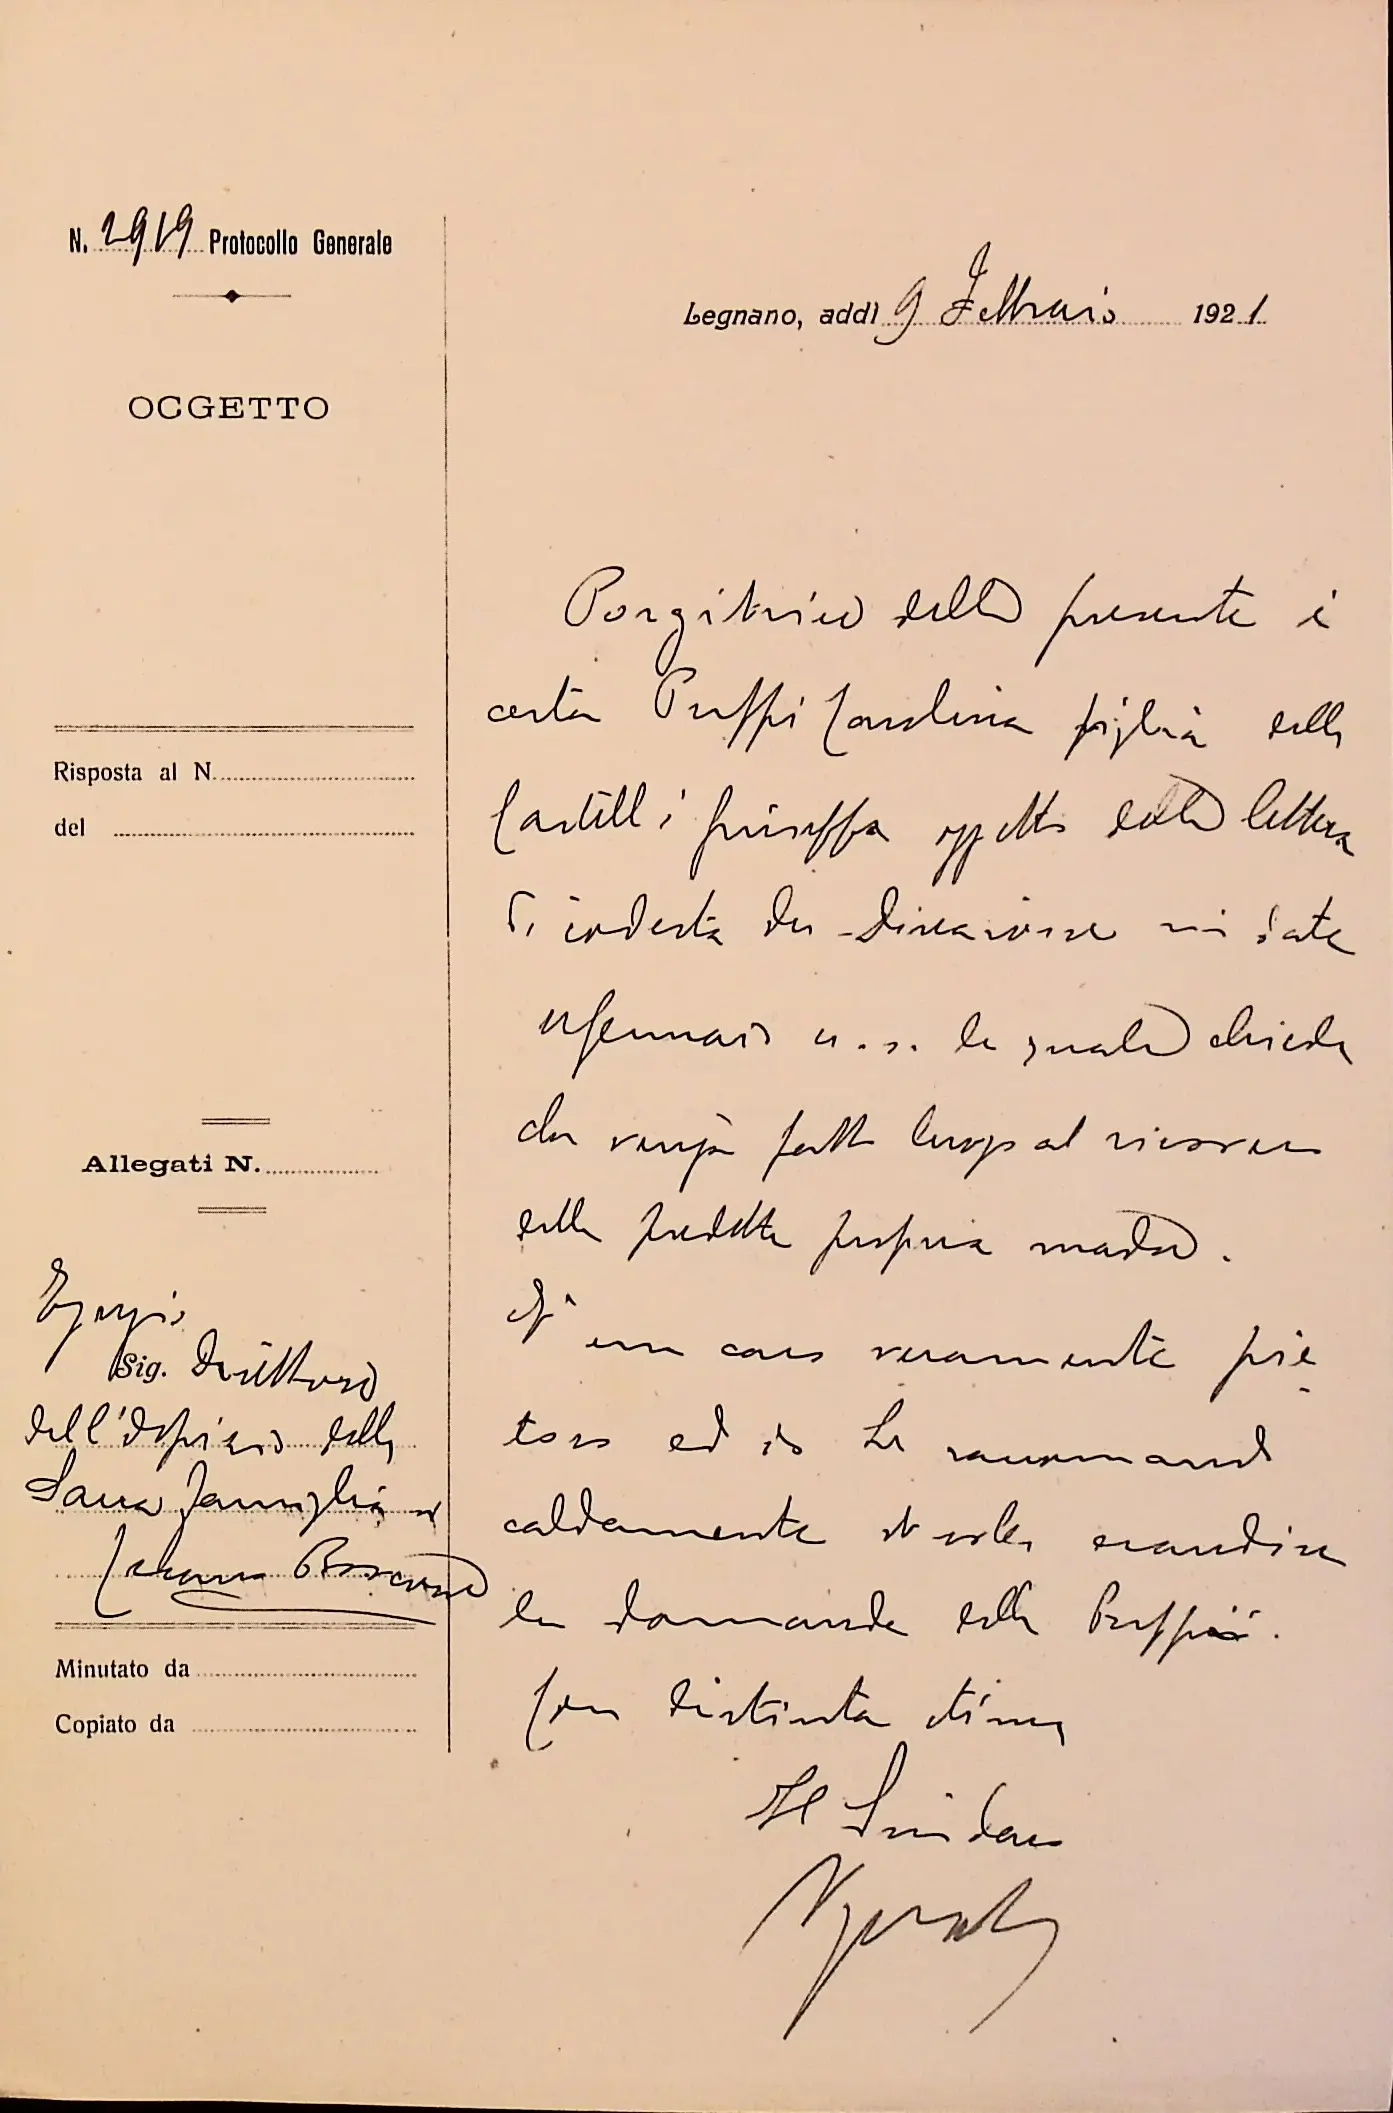 N. 2919 Protocollo Generale
OGGETTO
Risposta al N.
del
Allegati N.
Egregio
Sig. Direttore
dell'Ospizio della
Sacra Famiglia di
Cesano Boscone
Minutato da
Copiato da
Legnano, addì 9 Febbraio 1921
Porgitrice della presente è
certa Pruffi Carolina figlia della
Castelli Giuseppa oggetto della lettera
di codesta On. Direzione in data
Gennaio u. s. la quale chiede
che venga fatto luogo al ricovero
della predetta propria madre.
E' un caso veramente pie
toso ed io La raccomando
caldamente di voler esaudire
la domanda della Pruffi.
Con distinta stima
Il Sindaco